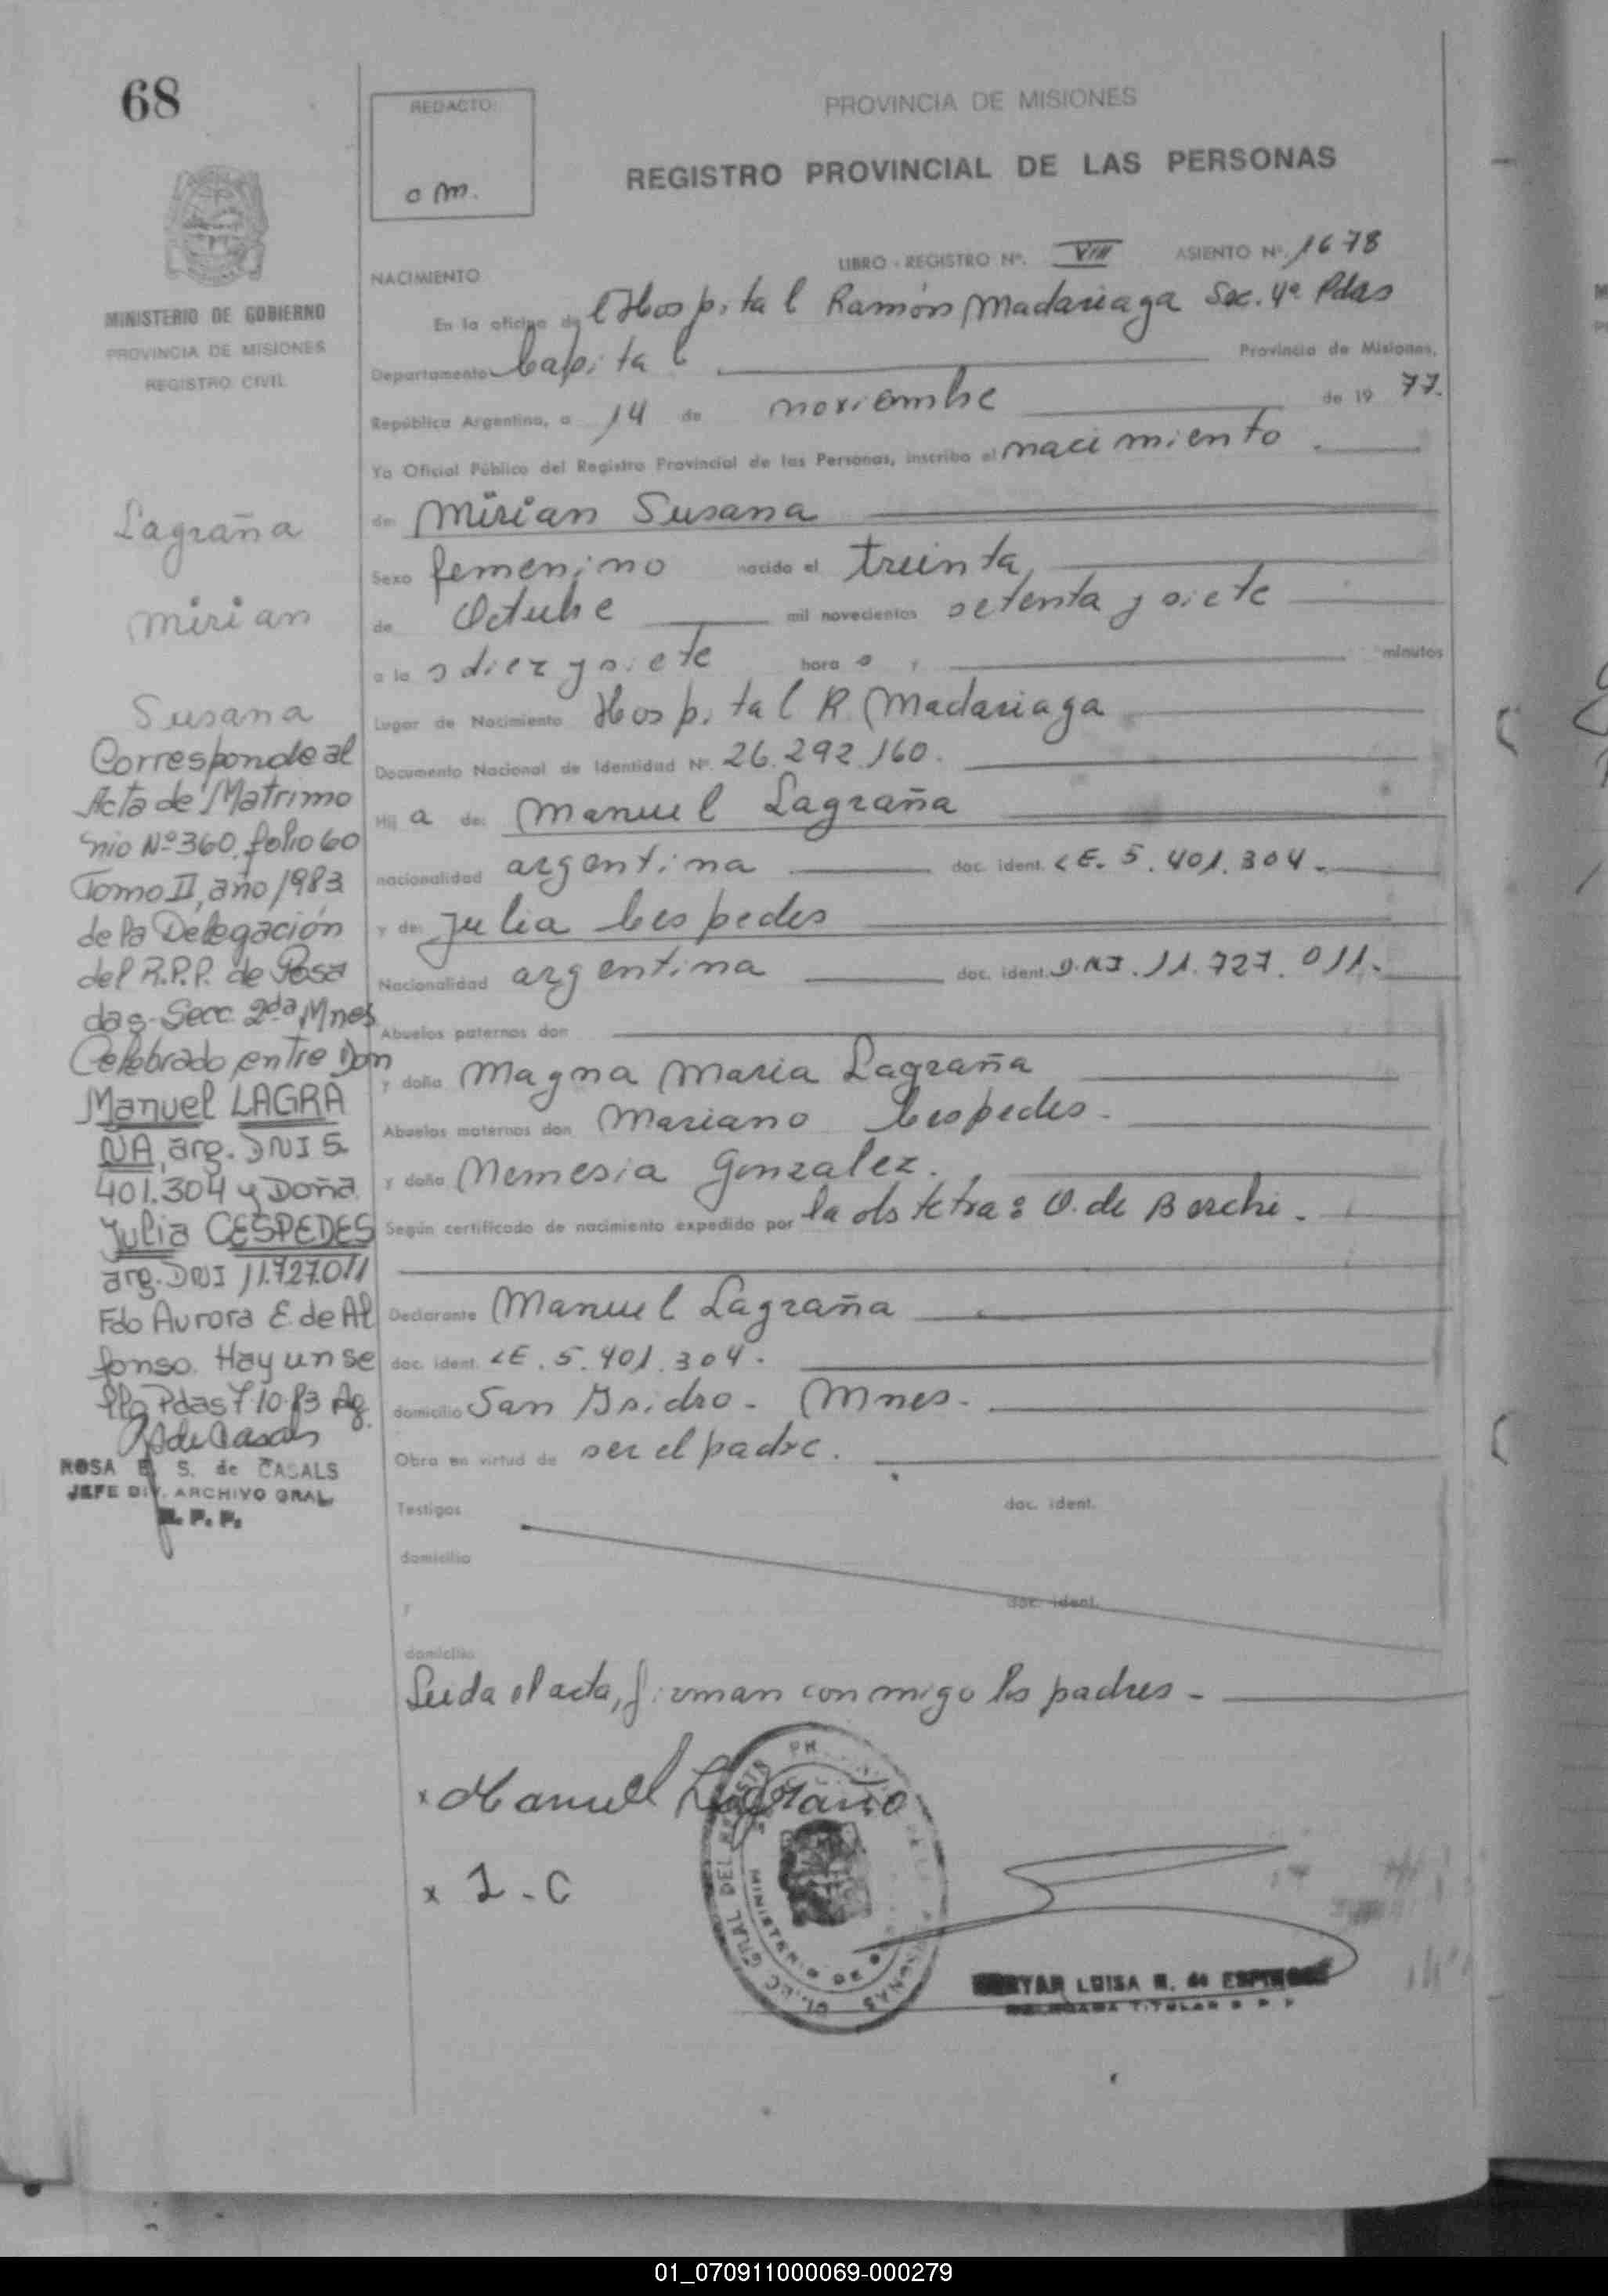 68
REDACTO:
o m.
PROVINCIA DE MISIONES
REGISTRO PROVINCIAL DE LAS PERSONAS
LIBRO - REGISTRO Nº. VIII ASIENTO Nº. 1678
NACIMIENTO
MINISTERIO DE GOBIERNO
PROVINCIA DE MISIONES
REGISTRO CIVIL
En la oficina del Hospital Ramón Madariaga Sec. 4ª Pdas
Departamento Capital Provincia de Misiones,
República Argentina, a 14 de noviembre de 19 77.
Yo Oficial Público del Registro Provincial de las Personas, inscribo el nacimiento.
de: Mirian Susana
Sexo femenino nacido el treinta
de Octubre mil novecientos setenta y siete
a la s diez y siete hora s y minutos
Lugar de Nacimiento Hospital R. Madariaga
Documento Nacional de Identidad Nº. 26.292.160.
Hij a de: Manuel Lagraña
nacionalidad argentina doc. ident. LE. 5.401.304.
y de: Julia Cespedes
Nacionalidad argentina doc. ident. D.N.I. 11.727.011.
Abuelos paternos don
y doña Magna Maria Lagraña
Abuelos maternos don Mariano Cespedes.
y doña Nemesia Gonzalez.
Según certificado de nacimiento expedido por la obstetra: O. de Berchi.
Declarante Manuel Lagraña
doc. ident. LE. 5.401.304.
domicilio San Isidro - Mnes.
Obra en virtud de ser el padre.
Testigos doc. ident.
domicilio
y doc. ident.
domicilio
Leida el acta, firman conmigo los padres -
x Manuel Lagraño
x J - C
LUISA R. de
TITULAR R P P
Lagraña
Mirian
Susana
Corresponde al
Acta de Matrimo
nio Nº 360, folio 60
Tomo II, año 1983
de la Delegación
del R.P.P. de Posa
das - Secc. 2da Mnes
Celebrado entre Don
Manuel LAGRA
ÑA, arg. DNI 5.
401.304 y Doña
Julia CESPEDES
arg. DNI 11.727.011
Fdo Aurora E. de Al
fonso. Hay un se
llo Pdas 7-10-83 Ag.
R de Casals
ROSA E. S. de CASALS
JEFE DIV. ARCHIVO GRAL.
R. P. P.
01_070911000069-000279